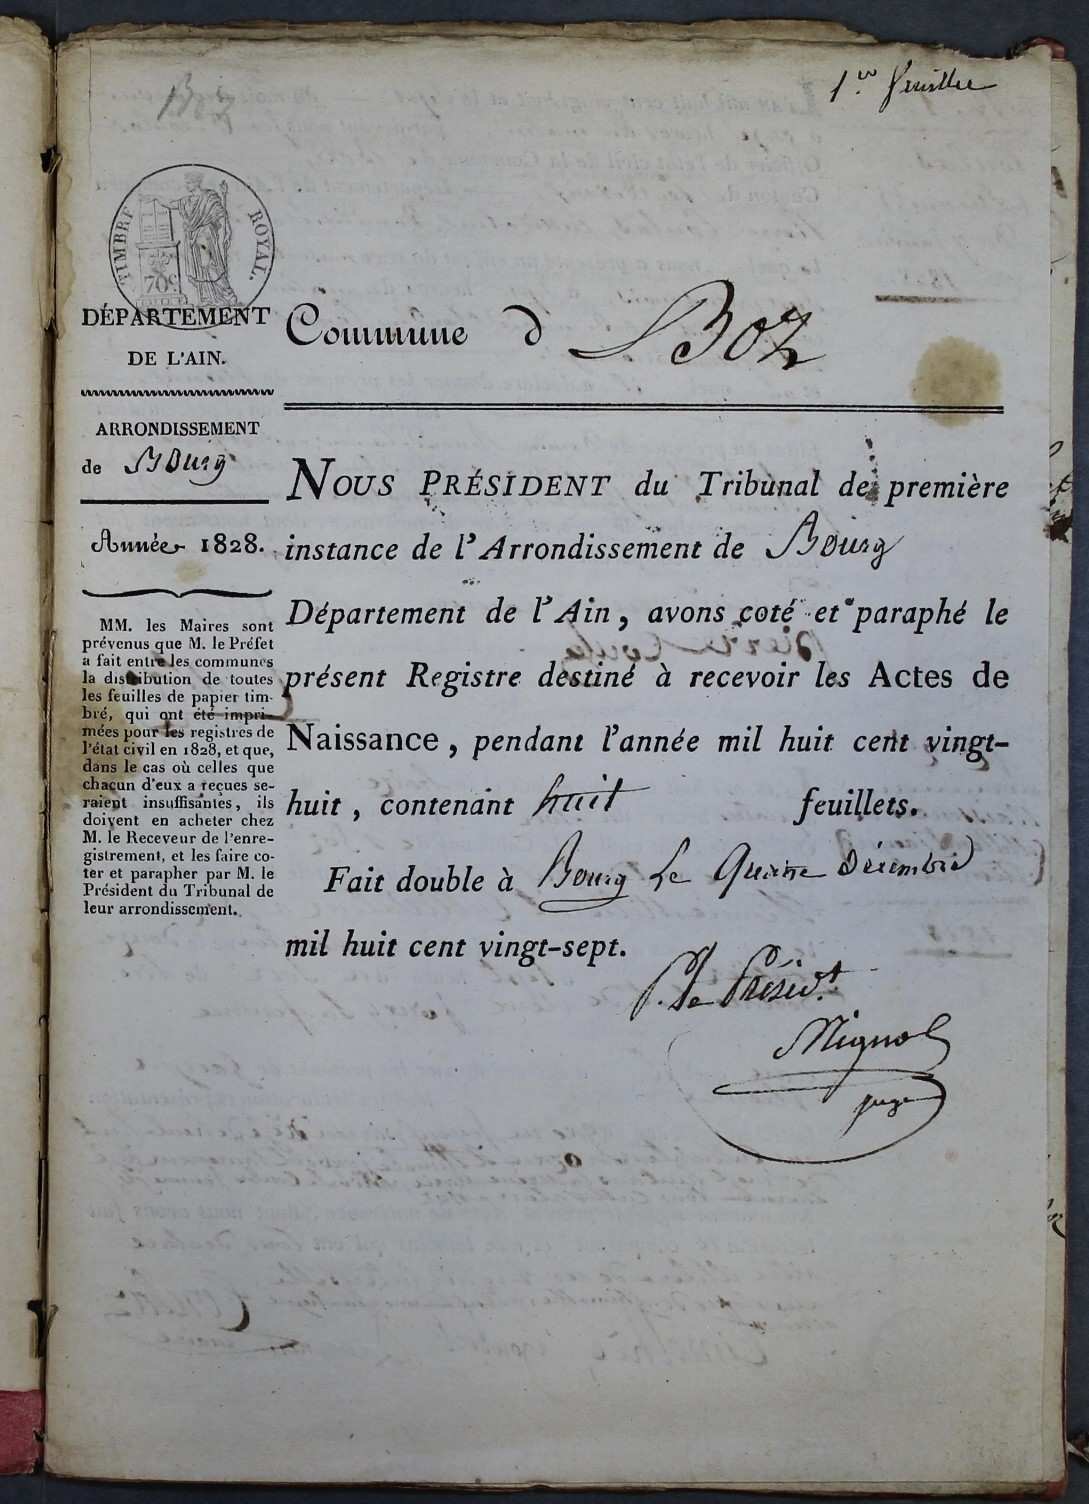 Boz
1er feuillet
TIMBRE ROYAL.
70c
DÉPARTEMENT
DE L'AIN.
ARRONDISSEMENT
de Bourg
Année 1828.
MM. les Maires sont
prévenus que M. le Préfet
a fait entre les communes
la distribution de toutes
les feuilles de papier tim-
bré, qui ont été impri-
mées pour les registres de
l'état civil en 1828, et que,
dans le cas où celles que
chacun d'eux a reçues se-
raient insuffisantes, ils
doivent en acheter chez
M. le Receveur de l'enre-
gistrement, et les faire co-
ter et parapher par M. le
Président du Tribunal de
leur arrondissement.
Commune d Boz
NOUS PRÉSIDENT du Tribunal de première
instance de l'Arrondissement de Bourg
Département de l'Ain, avons coté et paraphé le
présent Registre destiné à recevoir les Actes de
Naissance, pendant l'année mil huit cent vingt-
huit, contenant huit feuillets.
Fait double à Bourg Le Quinze Décembre
mil huit cent vingt-sept.
P. Le Présidt.
Mignot
juge